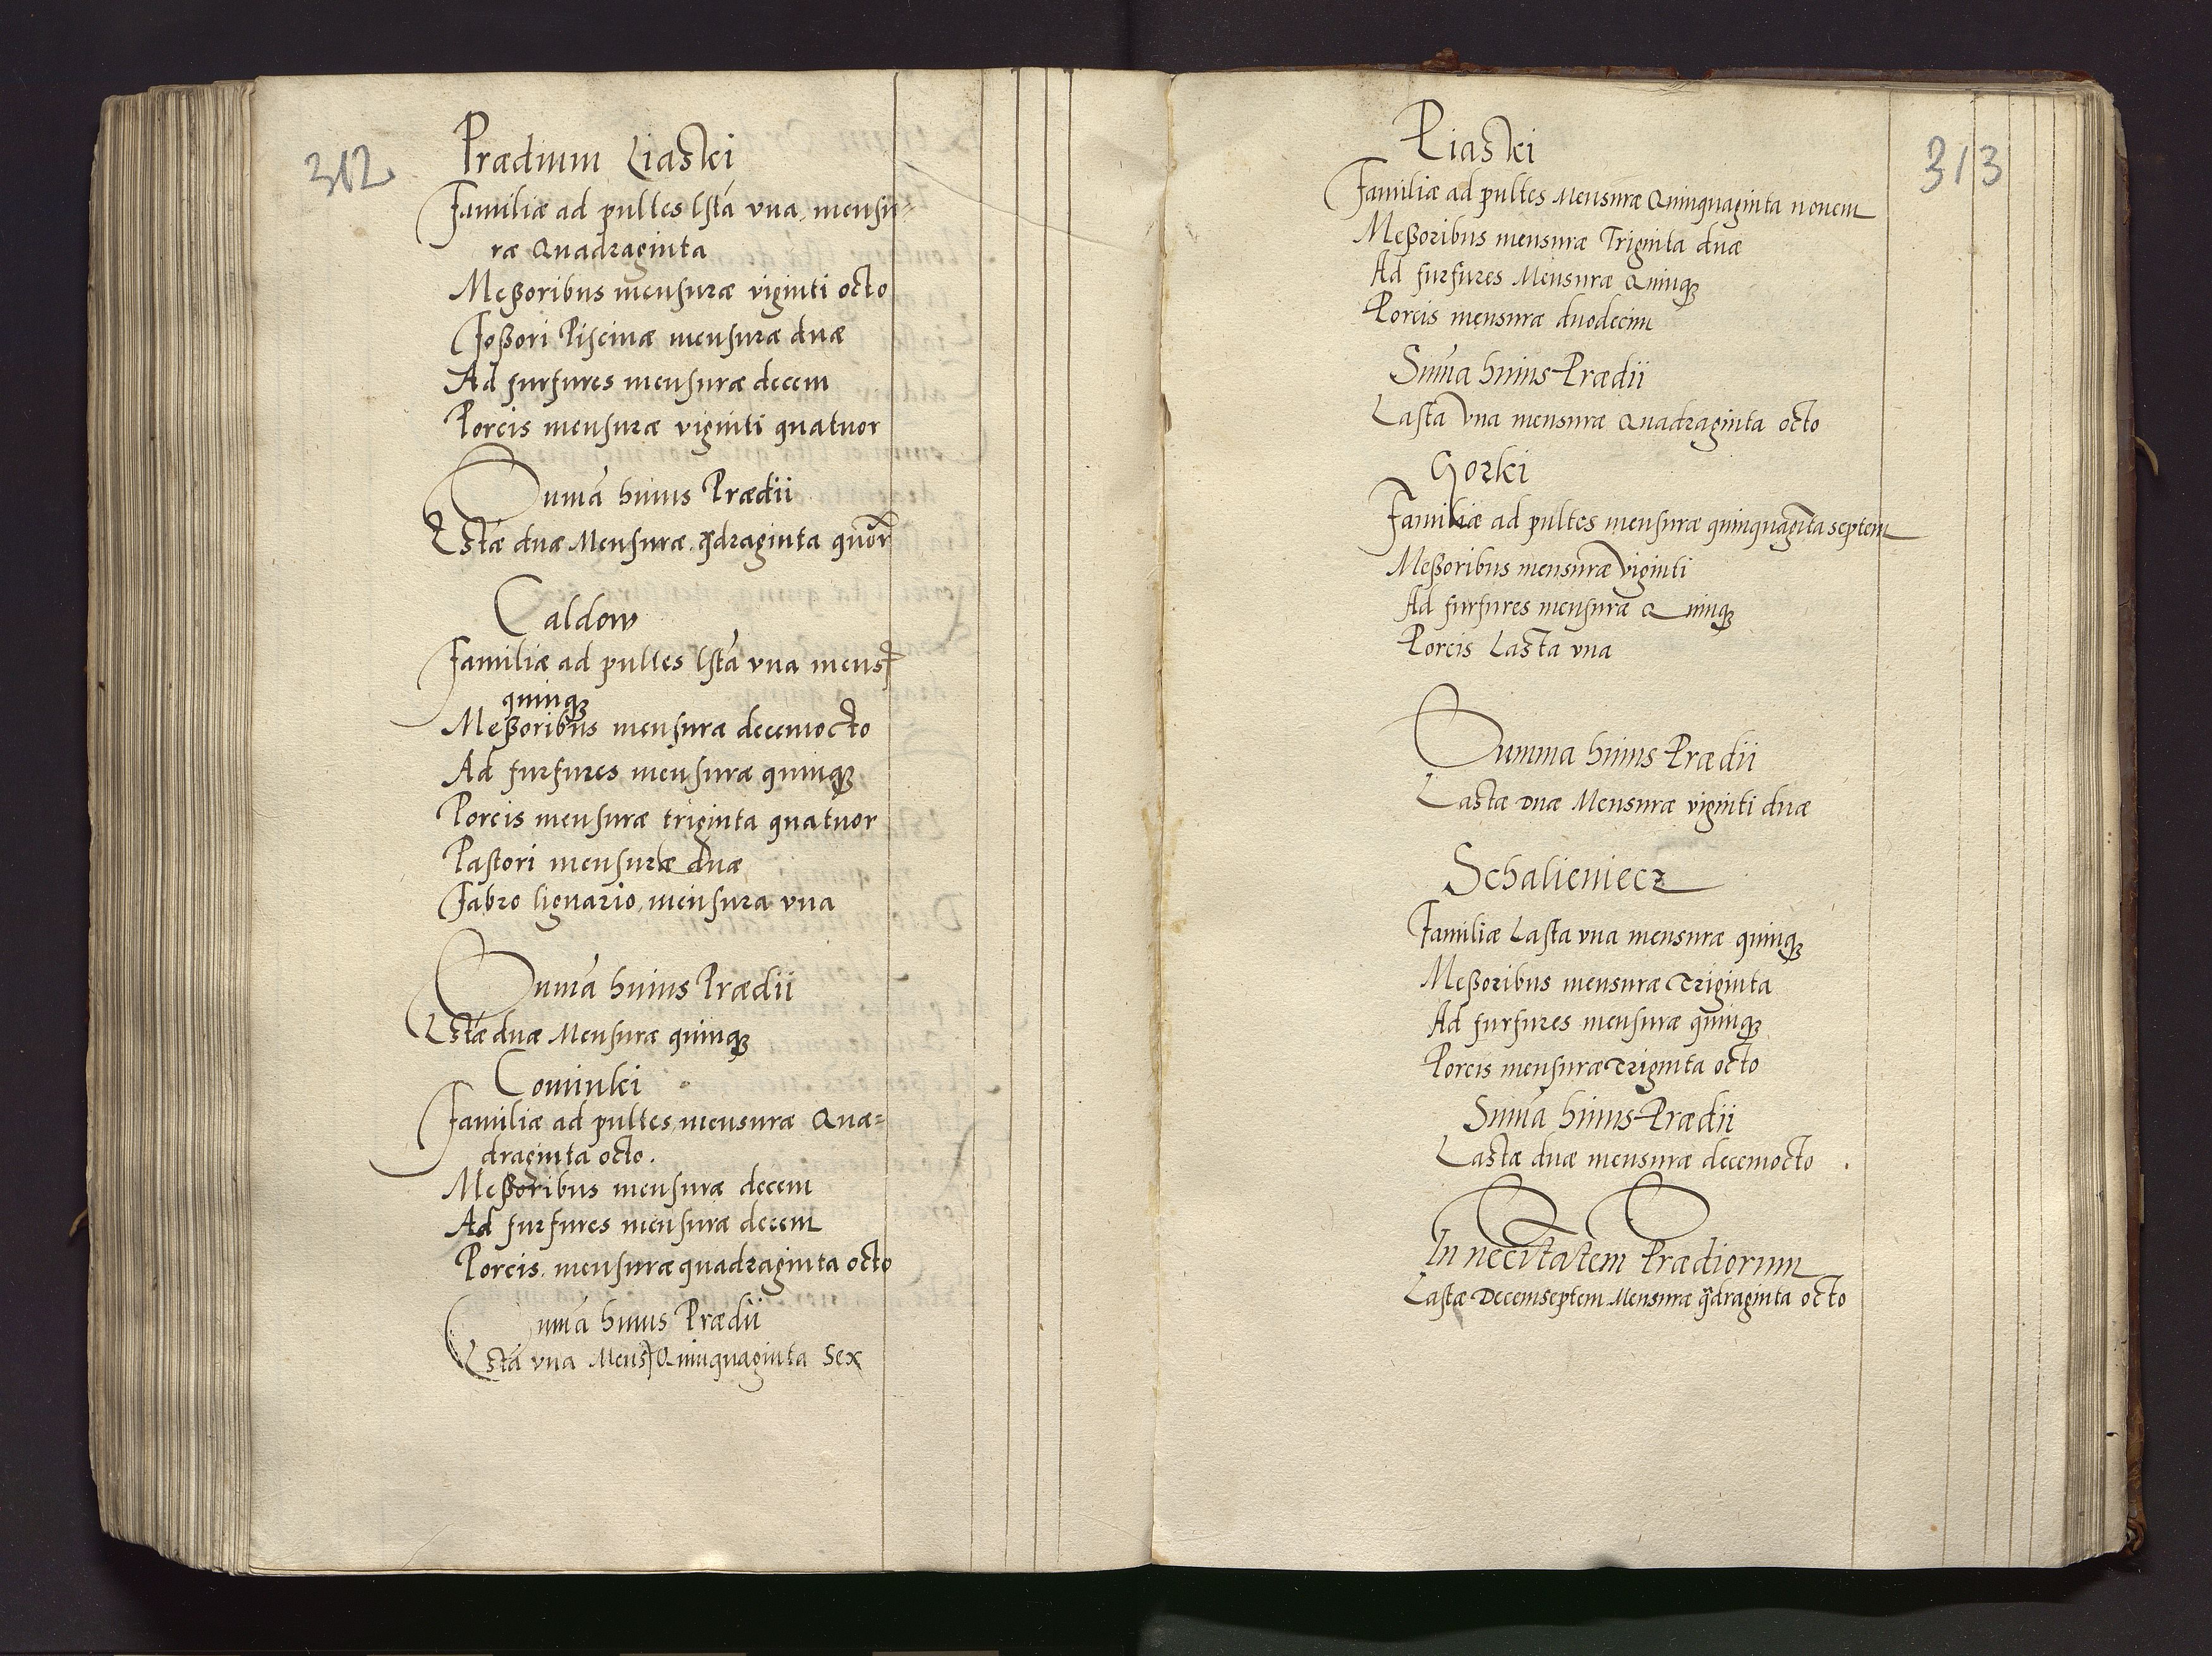 312
Prædium Liaski
Familiæ ad pultes lsta vna, mensu=
ræ Quadraginta
Meßoribus mensuræ viginti octo
Foßori Piscinæ mensuræ duæ
Ad furfures mensuræ decem
Porcis mensuræ viginti quatuor
Suma huius Prædii
Lstæ duæ Mensuræ qdraginta quor
Caldow
Familiæ ad pultes lsta vna mens
quinq
Meßoribus mensuræ decemocto
Ad furfures mensuræ quinq
Porcis mensuræ triginta quatuor
Pastori mensuræ duæ
Fabro lignario, mensura vna
Suma huius Prædii
Lstæ duæ Mensuræ quinq
Cominki
Familiæ ad pultes, mensuræ Qua=
draginta octo.
Meßoribus mensuræ decem
Ad furfures mensuræ decem
Porcis mensuræ quadraginta octo
Suma huius Prædii
Lsta vna Mens Quinquaginta Sex
313
Piaski
Familiæ ad pultes Mensuræ Quinquaginta nouem
Meßoribus mensuræ Triginta duæ
Ad furfures Mensuræ Quinq
Porcis mensuræ duodecim
Suma huius Prædii
Lasta Vna mensuræ Quadraginta octo
Gorki
Familiæ ad pultes mensuræ quinquagita septem
Meßoribus mensuræ Viginti
Ad furfures mensuræ Quinq
Porcis Lasta vna
Summa huius Prædii
Lastæ Duæ Mensuræ viginti duæ
Schalieniecz
Familiæ Lasta vna mensuræ quinq
Meßoribus mensuræ Triginta
Ad furfures mensuræ quinq
Porcis mensuræ Triginta octo
Suma huius Prædii
Lastæ duæ mensuræ decemocto.
In necitatem Prædiorum
Lastæ Decemseptem Mensuræ qdraginta octo